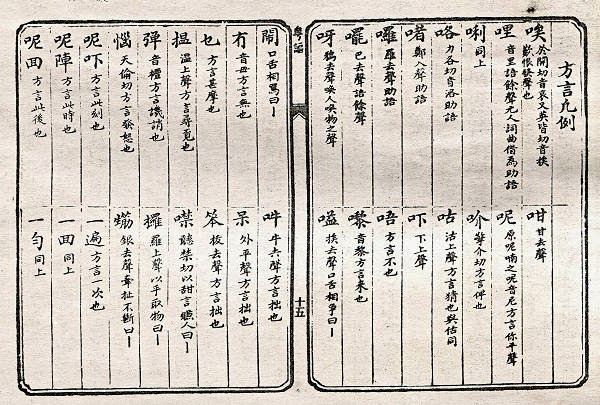 方言凡例
唉 於開切音哀又英皆切音挨歎恨發聲也
哩 音里語餘聲元人詞曲借為助語
唎 同上
咯 力各切音洛助語
啫 鄭入聲助語
囉 羅去聲助語
罷 巴去聲語餘聲
呀 鴉去聲喚人喚物之聲
咁 甘去聲
呢 原呢喃之呢音尼方言你平聲
吤 華介切方言件也
咕 沽上聲方言猜也與估同
吓 下上聲
唔 方言不也
嚟 音黎方言來也
嗌 挨去聲口舌相爭曰一
粵謳
十五
鬧 口舌相罵曰一
冇 音母方言無也
乜 方言甚麼也
揾 溫上聲方言尋覓也
彈 音檀方言譏誚也
惱 天倫切方言發怒也
呢吓 方言此刻也
呢陣 方言此時也
呢囬 方言此後也
吽 牛去聲方言拙也
呆 外平聲方言拙也
笨 板去聲方言拙也
噤 聽禁切以甜言𧨾人曰一
攞 羅上聲以手取物曰一
銀去聲牽扯不斷曰一
一遍 方言一次也
一囬 同上
一勻 同上